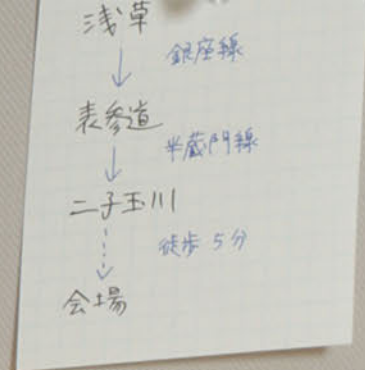 浅草
銀座線
表参道
半蔵門線
二子玉川
徒歩 5分
会場